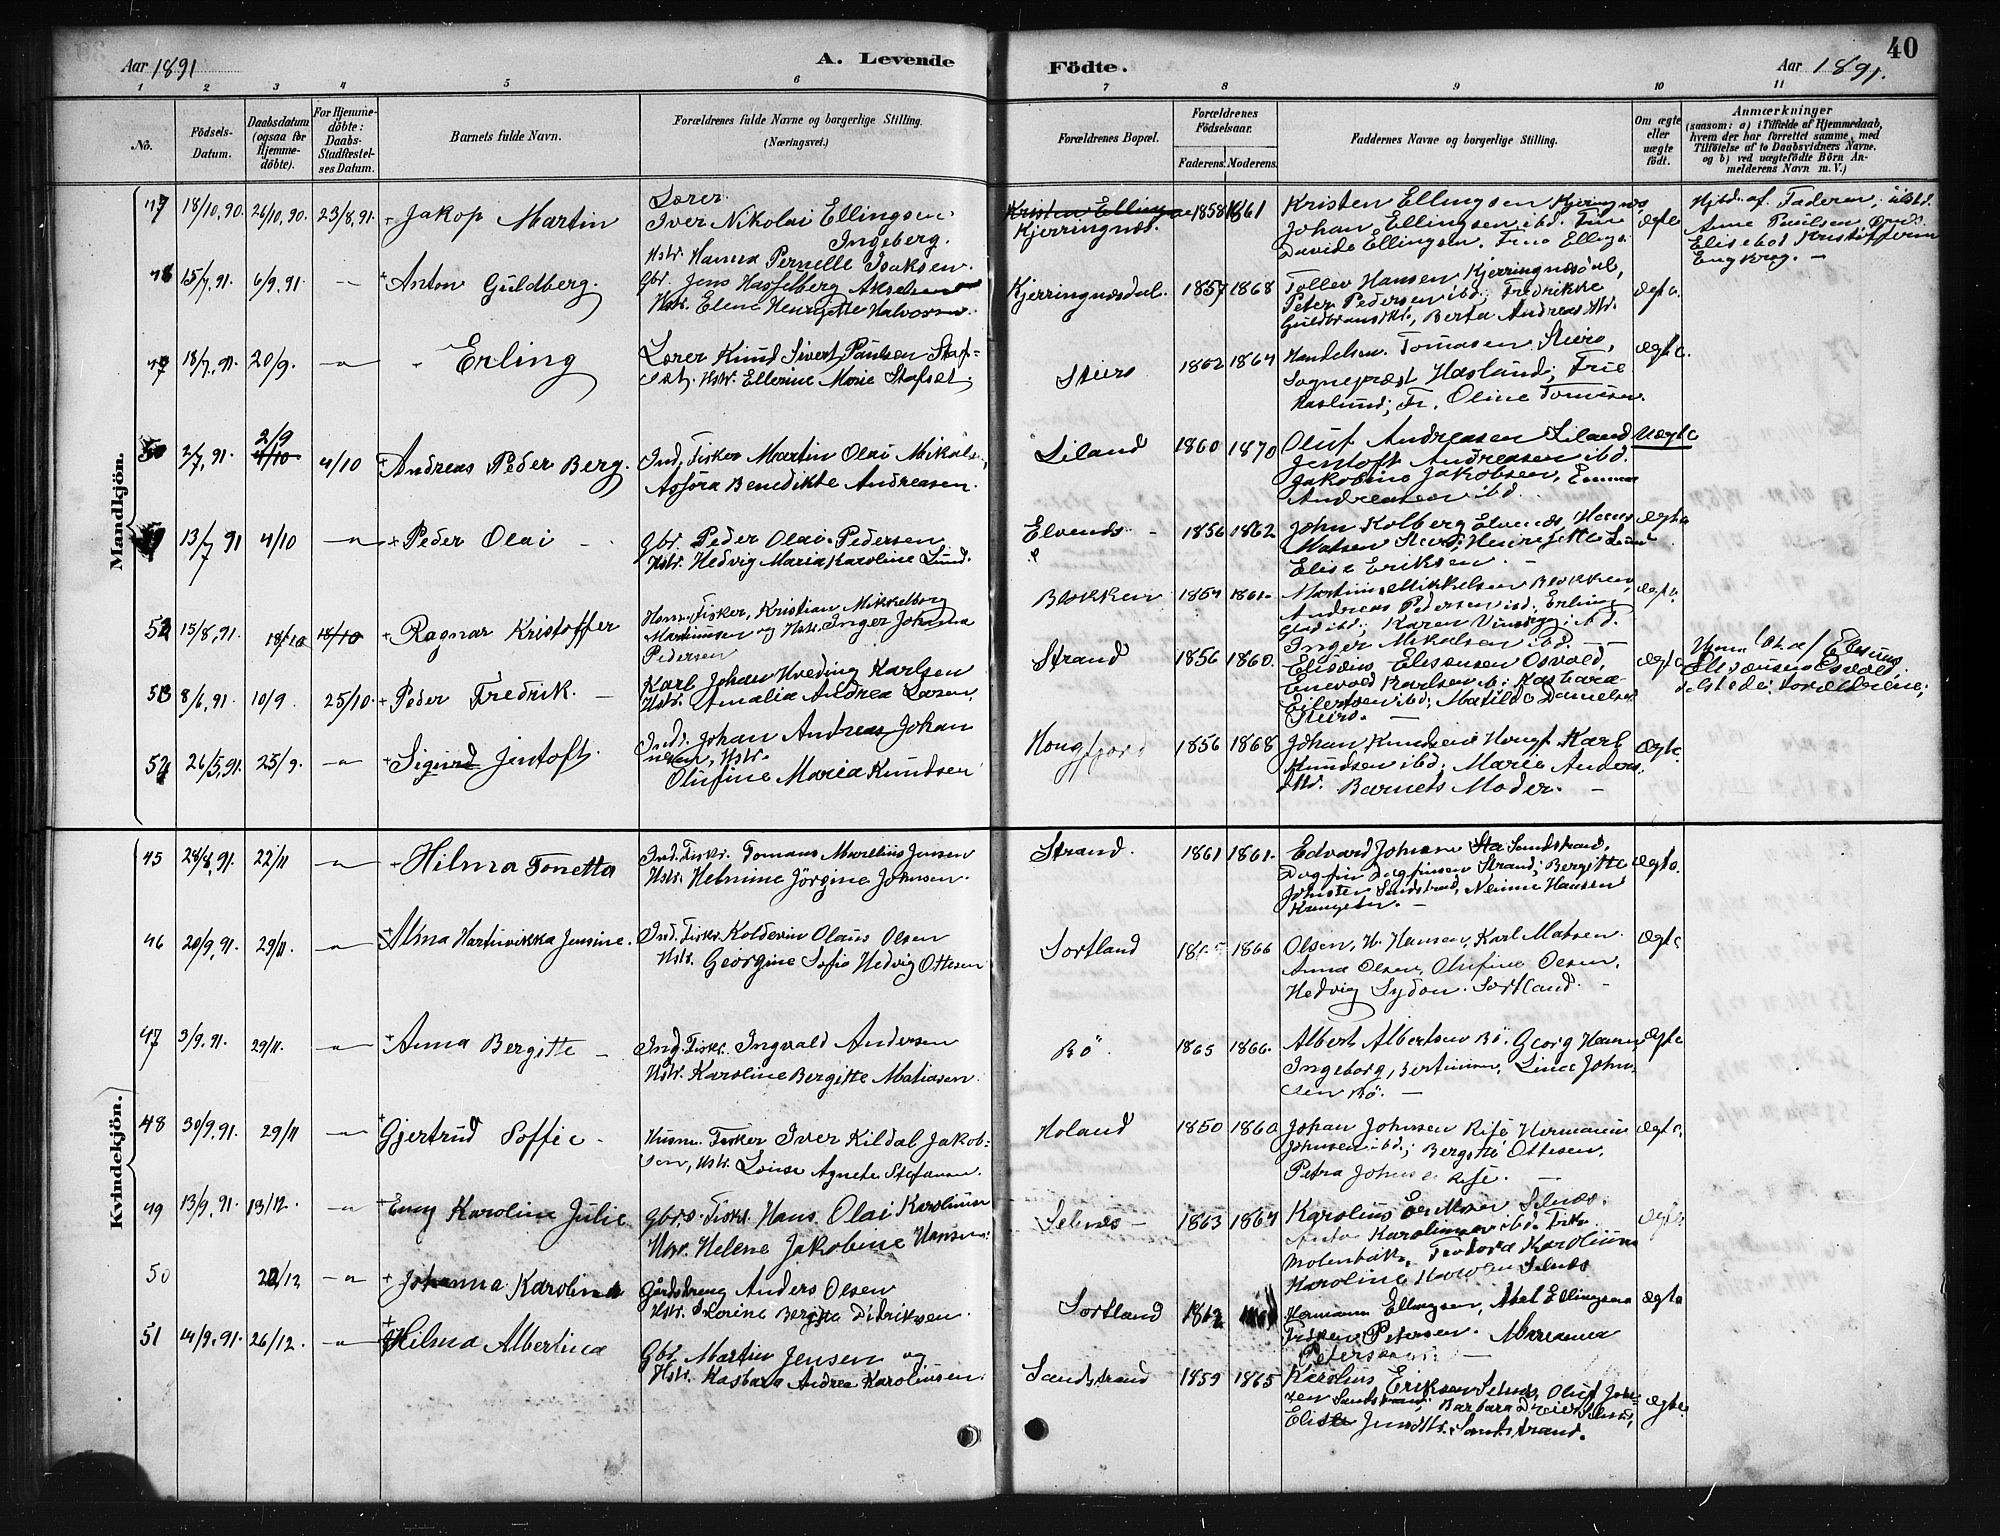 Aar 1891 A. Levende Födte. Aar 1891. 40
1 2 3 4 5 6 7 8 9 10 11
No. Födsels-Datum. Daabsdatum (ogsaa for Hjemmedöbte). For Hjemmedöbte: Daabs-Stadfæstelses Datum. Barnets fulde Navn. Forældrenes fulde Navne og borgerlige Stilling. (Næringsvei.) Forældrenes Bopæl. Forældrenes Födselsaar. Faderens. Moderens. Faddernes Navne og borgerlige Stilling. Om ægte eller uægte födt. Anmærkninger (saasom: a) i Tilfælde af Hjemmedaab, hvem der har forrettet samme, med Tilföielse af to Daabsvidners Navne. og b) ved uægtefödte Börn Anmelderens Navn m. V.)
Mandkjön.
18/10, 90. 26/10, 90. 23/8, 91. + Jakop Martin
Lærer
Iver Nikolai Ellingsen
Ingeberg.
Hstr. Hanna Pernelle Isaksen.
Kristen Ellingsen
Kjerringnæs. 1858 1861
Kristen Ellingsen Kjeringnæs
Johan Ellingsen ibd. Frue
Davida Ellingsen, Frue Ellings.
Ægte
Hjbd. af Faderen, ibd.
Anne Paulsen
Elisebet Kristoffersen
Engkrog. —
15/7, 91. 6/9, 91. — + Anton Guldberg.
Gbr. Jens Hasselberg Akselsen
Hstr. Elene Henrijette Halvorsen.
Kjerringnæsdal. 1857 1868
Tollev Hansen, Kjerringnæsdal,
Peter Pedersen ibd; Fredrikke
Guldbransdtr., Berta Andreasdtr.
Ægte.
18/7, 91. 20/9. —"— Erling
Lærer Knud Sivert Paulsen Stafset,
Hstr. Ellerine Marie Stafset.
Steiro 1862 1864
Handelsm. Tomasen Steiro,
Sognepræst Haslund; Frue
Haslund; Fr. Oline Tomasen.
Ægte.
50 2/7, 91. 2/9 4/10 4/10 + Andreas Peder Berg.
Ind, Fisker Martin Olai Mikals.,
Assora Benedikte Andreasen.
Liland 1860 1870
Oluf Andreasen Liland
Jentoft Andreasen ibd.
Jakobine Jakobsen, Emma
Andreasen ibd.
Uægte
13/7 91 4/10 —"— + Peder Olai —
Gbr. Peder Olai Pedersen
Hstr. Hedvig Maria Karoline Lund.
Elvenes — 1856 1862
John Kolberg Elvenes, Hans
Matsen Steiro; Henrijette Lund
Elise Eriksen. —
Ægte
52 15/8, 91. 18/10 18/10 + Ragnar Kristoffer
Hsm. Fisker, Kristian Mikkelborg
Martinussen og Hstr. Inger Johanna
Pedersen
Blokken 1864 1861.
Martinus Mikkelsen Blokken,
Andreas Pedersen ibd; Erling
ibd; Karen ibd.
Inger Mikalsen ibd. —
Ægte.
53 8/6, 91. 10/9. 25/10. + Peder Fredrik. —
Karl Johan Hveding Karlsen
Hstr. Amalia Andrea Larsen
Strand 1856 1860.
Elisæus Elisæusen Osvold,
Enevold Karlsen ib; Kasbara
Eilertsen ibd; Matilde Danielsen
Steiro. —
Ægte
Elisæus
Elisæusen Osvold,
Forældrene;
54 26/5, 91. 25/9. —"— + Sigurd Jentoft.
Ind. Johan Andreas Johannesen, Hstr.
Olufine Maria Knudsen
Hongfjord 1856 1868
Johan Knudsen Hongf. Karl
Knudsen ibd; Marie Andersdtr.
Barnets Moder. —
Ægte.
Kvindekjön.
45 28/8, 91. 22/11 —"— + Hilma Tonetta
Ind. Fisker. Tomas Marelius Jensen
Hstr. Helmine Jörgine Johnsen.
Strand. 1861 1861.
Edvard Johnsen Sandstrand,
Dagfin Dagfinsen Strand; Bergitte
Johnsen Sandstrand, Nemine Hansen
Ægte.
46 20/9, 91. 29/11. —"— + Alma Hartvikka Jensine.
Ind. Fisker Kolderin Olaus Olsen
Hstr. Georgine Sofie Hedvig Ottesen
Sortland 1866
Olsen, H. Hansen, Karl Matsen
Anna Olsen, Olufine Olsen,
Hedvig Lydon. Sortland. —
Ægte
47 3/9, 91. 29/11. —"— + Anna Bergitte —
Ind. Fisker. Ingvald Andersen
Hstr. Karoline Bergitte Matiasen.
Bö. 1865 1866.
Albert Albertsen Bö. Georg Hansen
Ingeborg Bertinsen, Lina Johnsen Bö. —
Ægte
48 30/9, 91. 29/11 —"— + Gjertrud Soffie —
Husm. Fisker Iver Kildal Jakobsen, Hstr. Lovise Agnete Stefansen.
Holand 1850 1860
Johan Johnsen Rise Hermann
Johnsen ibd; Bergitte Ottesen,
Petra Johnsen Rise. —
Ægte.
49 13/9, 91. 13/12. —"— + Emy Karoline Julie
Gbr. s. Fisker. Hans Olai Karolius
Hstr. Helene Jakobine Hansen.
Selnæs — 1863 1864
Karolius Eriksen Selnæs.
Karoliussen ibd.
Teodora Karoliussen
Karoline Selnæs
Ægte
50 20/12 —"— + Johanna Karoline
Gårdsdreng Anders Olsen
Hstr. Lorine Bergitte Didriksen.
Sortland 1862
Hermann Ellingsen, Abel Ellingsen
Petersen. Marianna
Petersen —
Ægte
51 14/9, 91. 26/12. —"— + Hilma Albertina
Gbr. Martin Jensen og
Hstr. Kasbara Andrea Karoliussen.
Sandstrand 1859 1865
Karolius Eriksen Selnæs, Oluf Johnsen Sandstrand, Barbara Selnæs,
Elise Jensdtr. Sandstrand.
Ægte